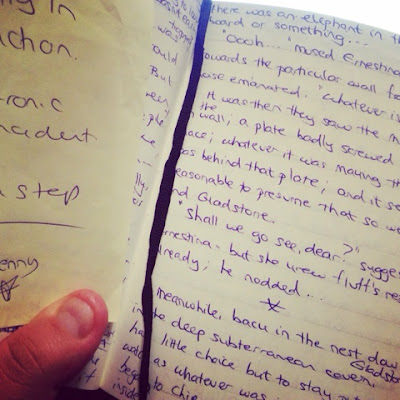 ng In
achon.
ronic
ncident.
step
enny
there was an elephant in th
board or something...
"Oooh..." mused Ernestina
towards the particular wall fr
oise emanated. "Whatever is
It was then they saw the m
the
wall; a plate badly screwed
lace; whatever it was making th
as behind that plate; and it se
reasonable to presume that so we
nd Gladstone.
"Shall we go see, dear...?" sugges
rnestina - but she knew fluff's rea
lready; he nodded...
Meanwhile, back in the nest, daw
in the deep subterranean cavern, Gladsto
ha little choice but to stay
as whatever was
bega to chip
inside
ould
But